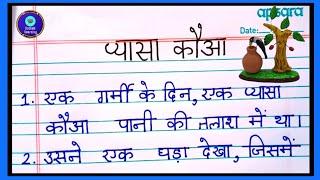 apsara
प्यासा कौआ
1. एक गर्मी के दिन, एक प्यासा
कौआ पानी की तलाश में था।
2. उसने एक घड़ा देखा, जिसमें